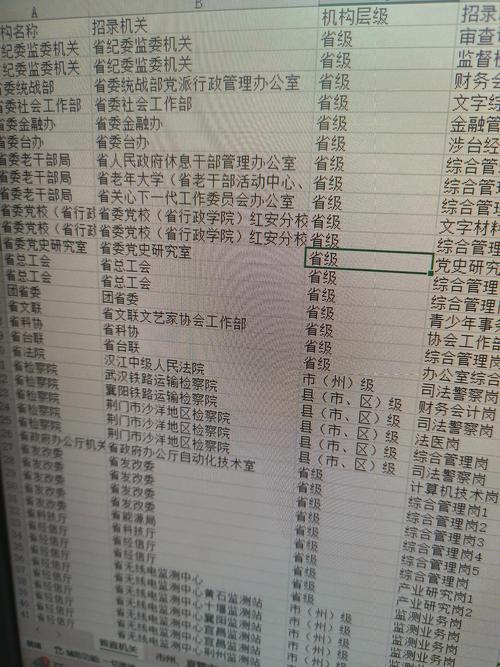 A B
构名称 招录机关 机构层级 招录
省纪委监委机关 省纪委监委机关 省级 审查
省纪委监委机关 省纪委监委机关 省级 监督
省委统战部 省委统战部党派行政管理办公室 省级 财务会
省委社会工作部 省委社会工作部 省级 文字综
省委金融办 省委金融办 省级 金融管
省委台办 省委台办 省级 涉台经
省委老干部局 省人民政府休息干部管理办公室 省级 综合管
省委老干部局 省老年大学（省老干部活动中心、 省级 综合管
省委老干部局 省关心下一代工作委员会办公室 省级 综合管
省委党校（省行政 省委党校（省行政学院）红安分校 省级 文字材
省委党校（省行政 省委党校（省行政学院）红安分校 省级 综合管理
省委党史研究室 省委党史研究室 省级 党史研究
省总工会 省总工会 省级 综合管理
省总工会 省总工会 省级 综合管理
团省委 团省委 省级 青少年事
省文联 省文联文艺家协会工作部 省级 协会工作
省科协 省科协 省级 综合管理岗
省台联 省台联 省级 办公室综合
省法院 汉江中级人民法院 市（州）级 司法警察岗
省检察院 武汉铁路运输检察院 县（市、区）级 财务会计岗
省检察院 襄阳铁路运输检察院 县（市、区）级 司法警察岗
省检察院 荆门市沙洋地区检察院 县（市、区）级 法医岗
省检察院 荆门市沙洋地区检察院 县（市、区）级 综合管理岗
省检察院 荆门市沙洋地区检察院 县（市、区）级 司法警察岗
省政府办公厅机关 省政府办公厅自动化技术室 省级 计算机技术岗
省发改委 省发改委 省级 综合管理岗1
省发改委 省发改委 省级 综合管理岗3
省发改委 省发改委 省级 综合管理岗4
省发改委 省能源局 省级 综合管理岗5
省科技厅 省科技厅 省级 综合管理岗
省经信厅 省经信厅 省级 产业研究岗1
省经信厅 省经信厅 省级 产业研究岗2
省经信厅 省无线电监测中心黄石监测站 市（州）级 监测业务岗
省经信厅 省无线电监测中心十堰监测站 市（州）级 监测业务岗
省经信厅 省无线电监测中心襄阳监测站 市（州）级 监测业务
省经信厅 省无线电监测中心宜昌监测站 市（州）级
省经信厅 省无线电监测中心荆州监测站
省直机关